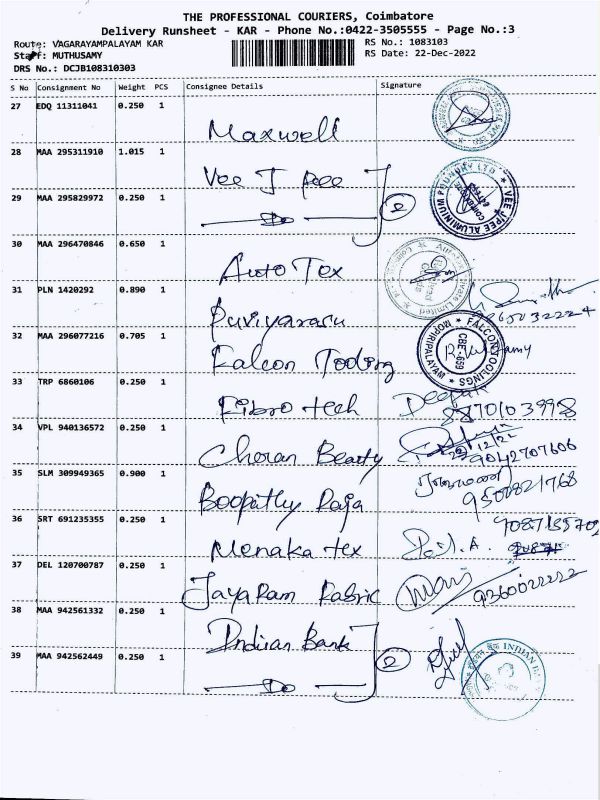 THE PROFESSIONAL COURIERS, Coimbatore
Delivery Runsheet - KAR - Phone No.:0422-3505555 - Page No.:3
Route: VAGARAYAMPALAYAM KAR
RS No.: 1083103
Staff: MUTHUSAMY
RS Date: 22-Dec-2022
DRS No.: DCJB108310303
S No Consignment No Weight PCS Consignee Details Signature
27 EDQ 11311041 0.250 1
Maxwell
28 MAA 295311910 1.015 1
Vee J pee
29 MAA 295829972 0.250 1
Do 2
VEE JPEE ALUMINIUM FOUNDRY
30 MAA 296470846 0.650 1
Auto Tex
31 PLN 1420292 0.890 1
Puviyarasu
32 MAA 296077216 0.705 1
Falcon Tooling
FALCON TOOLINGS
CBE -659
MOPIRIPALAYAM
33 TRP 6860106 0.250 1
Fibro tech
8870103998
34 VPL 940136572 0.250 1
Cheran Beauty
22/12/22
9042707606
35 SLM 309949365 0.900 1
Boopathy Raja
9500821768
36 SRT 691235355 0.250 1
Menaka tex
37 DEL 120700787 0.250 1
Jayaram Fabric
9360022222
38 MAA 942561332 0.250 1
Indian Bank
39 MAA 942562449 0.250 1
Do 2
INDIAN